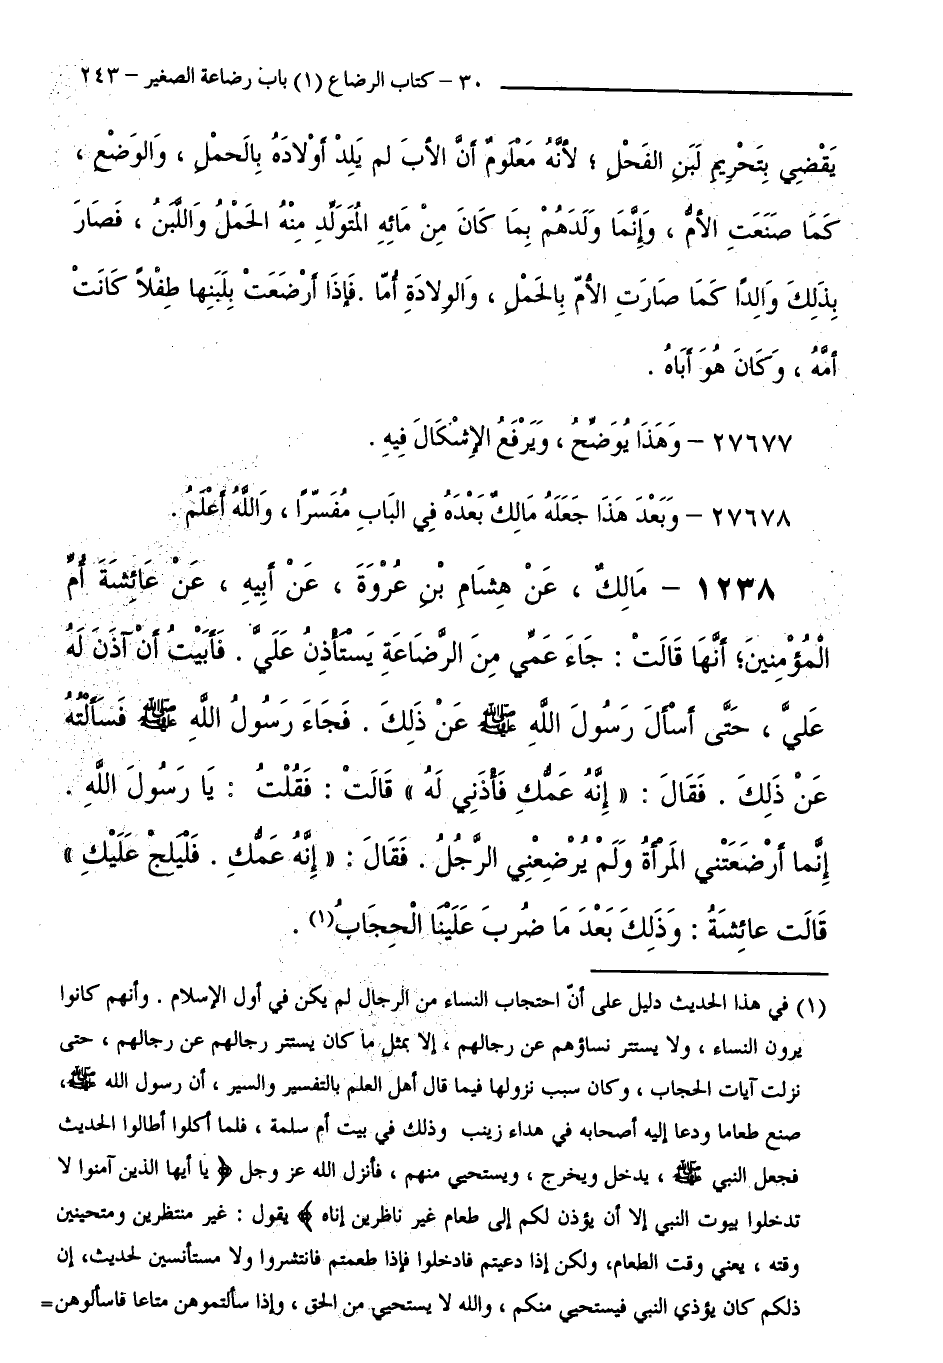 ٣٠ – كتاب الرضاع (١) باب رضاعة الصغير – ٢٤٣
يَقْضِي بِتَحْرِيمِ لَبَنِ الفَحْلِ ؛ لأنَّهُ مَعْلُومٌ أنَّ الأبَ لم يَلِدْ أوْلادَهُ بِالَحملِ ، وَالوَضْعِ ،
كَمَا صَنَعَتِ الأمُّ ، وَإِنَّمَا وَلَدَهُمْ بِمَا كَانَ مِنْ مَائِهِ الُمتَوَلَّدِ مِنْهُ الحَمْلُ وَاللَّبَنُ ، فَصَارَ
بِذَلِكَ وَالِدًا كَمَا صَارَتِ الأُمّ بِالحَمْلِ ، وَالوِلادَةِ أُمّا .فَإِذَا أرْضَعَتْ بِلَبَنِها طِفْلاً كَانَتْ
أمَّهُ ، وَكَانَ هُوَ أبَاهُ .
٢٧٦٧٧ – وَهَذَا يُوَضِّحُ ، وَيَرْفَعُ الإِشْكَالَ فِيهِ .
٢٧٦٧٨ – وَبَعْدَ هَذَا جَعَلَهُ مَالِكٌ بَعْدَهُ فِي البَابِ مُفَسّرًا ، وَاللَّهُ أعْلَمُ .
١٢٣٨ – مَالِكٌ ، عَنْ هِشَامِ بْنِ عُرْوَةَ ، عَنْ أبِيهِ ، عَنْ عَائِشَةَ أُمِّ
الْمُؤْمِنِينَ؛ أنَّهَا قَالَتْ : جَاءَ عَمِّي مِنَ الرَّضَاعَةِ يَسْتَأْذِنُ عَلَيَّ . فَأَبَيْتُ أنْ آذَنَ لَهُ
عَلَيَّ ، حَتَّى أسْألَ رَسُولَ اللَّهِ ﷺ عَنْ ذَلِكَ . فَجَاءَ رَسُولُ اللَّهِ ﷺ فَسَألْتُهُ
عَنْ ذَلِكَ . فَقَالَ : « إِنَّهُ عَمُّكِ فَأْذَنِي لَهُ » قَالَتْ : فَقُلْتُ : يَا رَسُولَ اللَّهِ .
إِنَّما أرْضَعَتْنِي المَرْأةُ وَلَمْ يُرْضِعْنِي الرَّجُلُ . فَقَالَ : « إِنَّهُ عَمُّكِ . فَلْيَلِجْ عَلَيْكِ »
قَالَت عائِشَةُ : وَذَلِكَ بَعْدَ مَا ضُرِبَ عَلَيْنَا الْحِجَابُ(١) .
(١) في هذا الحديث دليل على أنّ احتجاب النساء من الرجال لم يكن في أول الإسلام . وأنهم كانوا
يرون النساء ، ولا يستتر نساؤهم عن رجالهم ، إلا بمثل ما كان يستتر رجالهم عن رجالهم ، حتى
نزلت آيات الحجاب ، وكان سبب نزولها فيما قال أهل العلم بالتفسير والسير ، أن رسول الله ﷺ،
صنع طعاما ودعا إليه أصحابه في هداء زينب وذلك في بيت أم سلمة ، فلما أكلوا أطالوا الحديث
فجعل النبي ﷺ ، يدخل ويخرج ، ويستحيي منهم ، فأنزل الله عز وجل ﴿ يا أيها الذين آمنوا لا
تدخلوا بيوت النبي إلا أن يؤذن لكم إلى طعام غير ناظرين إناه ﴾ يقول : غير منتظرين ومتحينين
وقته ، يعني وقت الطعام، ولكن إذا دعيتم فادخلوا فإذا طعمتم فانتشروا ولا مستأنسين لحديث، إن
ذلكم كان يؤذي النبي فيستحيي منكم ، والله لا يستحيي من الحق ، وإذا سألتموهن متاعا فاسألوهن=